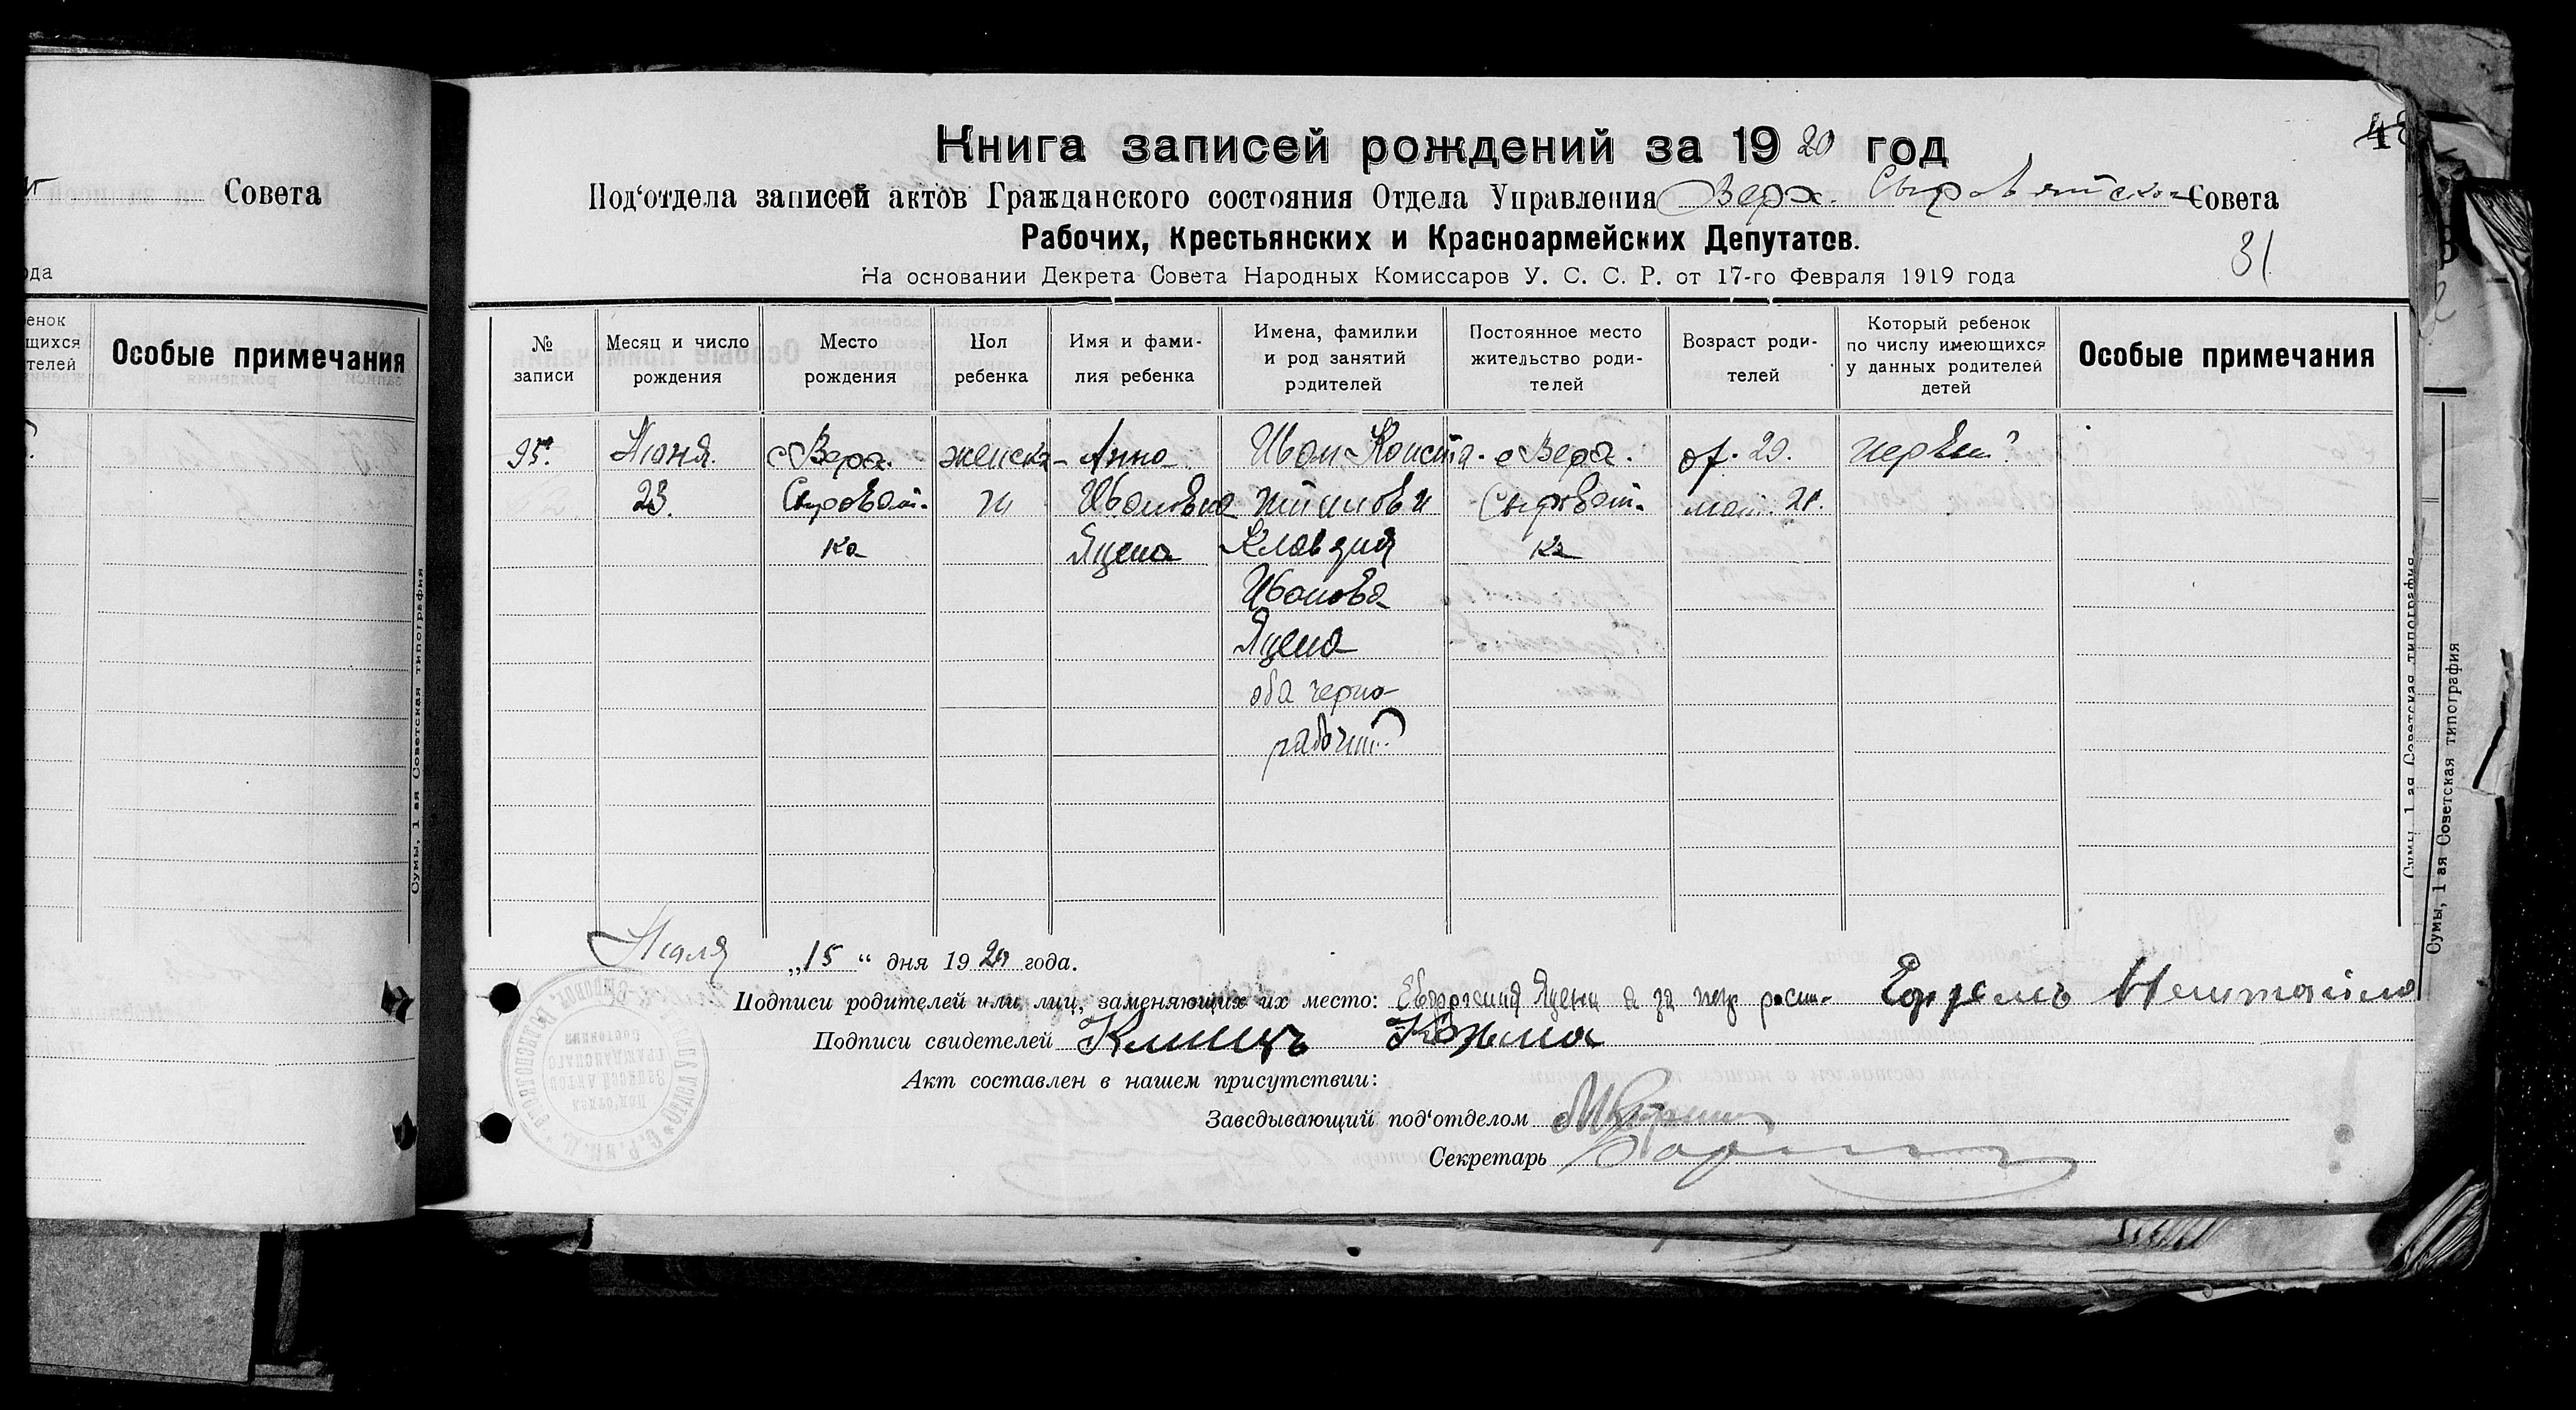 Совета
ода
енок
щихся
телей
Особые примечания
Сумы, 1 ая Советская типография
Книга записей рождений за 1920 год
Под‘отдела записей актов Гражданского состояния Отдела Управления Верх. Сыроватской Совета
Рабочих, Крестьянских и Красноармейских Депутатов.
31
На основании Декрета Совета Народных Комиссаров У. С. С. Р. от 17-го Февраля 1919 года
№ записи
Месяц и число рождения
Место рождения
Пол ребенка
Имя и фами-
лия ребенка
Имена, фамилии
и род занятий
родителей
Постоянное место
жительство роди-
телей
Возраст роди-
телей
Который ребенок
по числу имеющихся
у данных родителей
детей
Особые примечания
95.
Июня.
23.
с Верх.
Сыроват.
ка
женска-
го
Анна
Ивановна
Яцена
Иван Конста.
нтинови
Клавдия
Иванова
Яцена
оба черно-
рабочии
с Верх.
Сыроват.
ка
от. 29.
мат. 21.
первый
Июля „15“ дня 1920 года.
Подписи родителей или лиц, заменяющих их место: Евфросиния Яцена а за нер роспи-
Подписи свидетелей Климць Козьма
Акт составлен в нашем присутствии:
Заведывающий под‘отделом
Секретарь
Сумы, 1 ая Советская типография
Сумы, 1 ая Советская типография